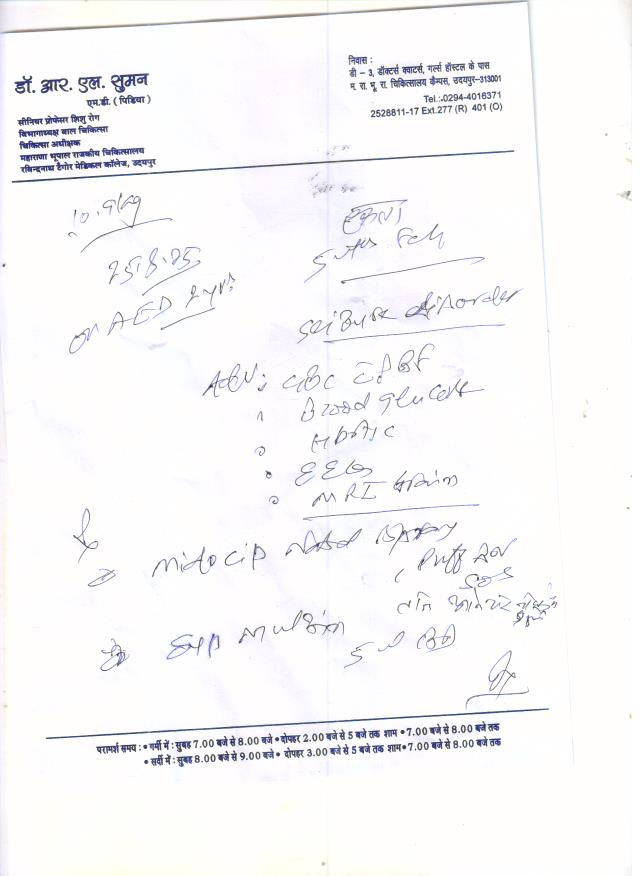 डॉ. आर. एल. सुमन
एम.डी. (पिडिया)
सीनियर प्रोफेसर शिशु रोग
विभागाध्यक्ष बाल चिकित्सा
चिकित्सा अधीक्षक
महाराणा भूपाल राजकीय चिकित्सालय
रविन्द्रनाथ टैगोर मेडिकल कॉलेज, उदयपुर
निवास :
डी – 3, डॉक्टर्स क्वाटर्स, गर्ल्स हॉस्टल के पास
म. रा. भू. रा. चिकित्सालय कैम्पस, उदयपुर-313001
Tel.:.0294-4016371
2528811-17 Ext.277 (R) 401 (O)
25.8.25
on AED
Seizure disorder
Adv: CBC
Blood Glucose
EEG
MRI Brain
Midacip Nasal Spray
1 Puff
SOS
Syp
5 ml BD
परामर्श समय : • गर्मी में : सुबह 7.00 बजे से 8.00 बजे • दोपहर 2.00 बजे से 5 बजे तक शाम • 7.00 बजे से 8.00 तक
• सर्दी में : सुबह 8.00 बजे से 9.00 बजे • दोपहर 3.00 बजे से 5 बजे तक शाम • 7.00 बजे से 8.00 तक